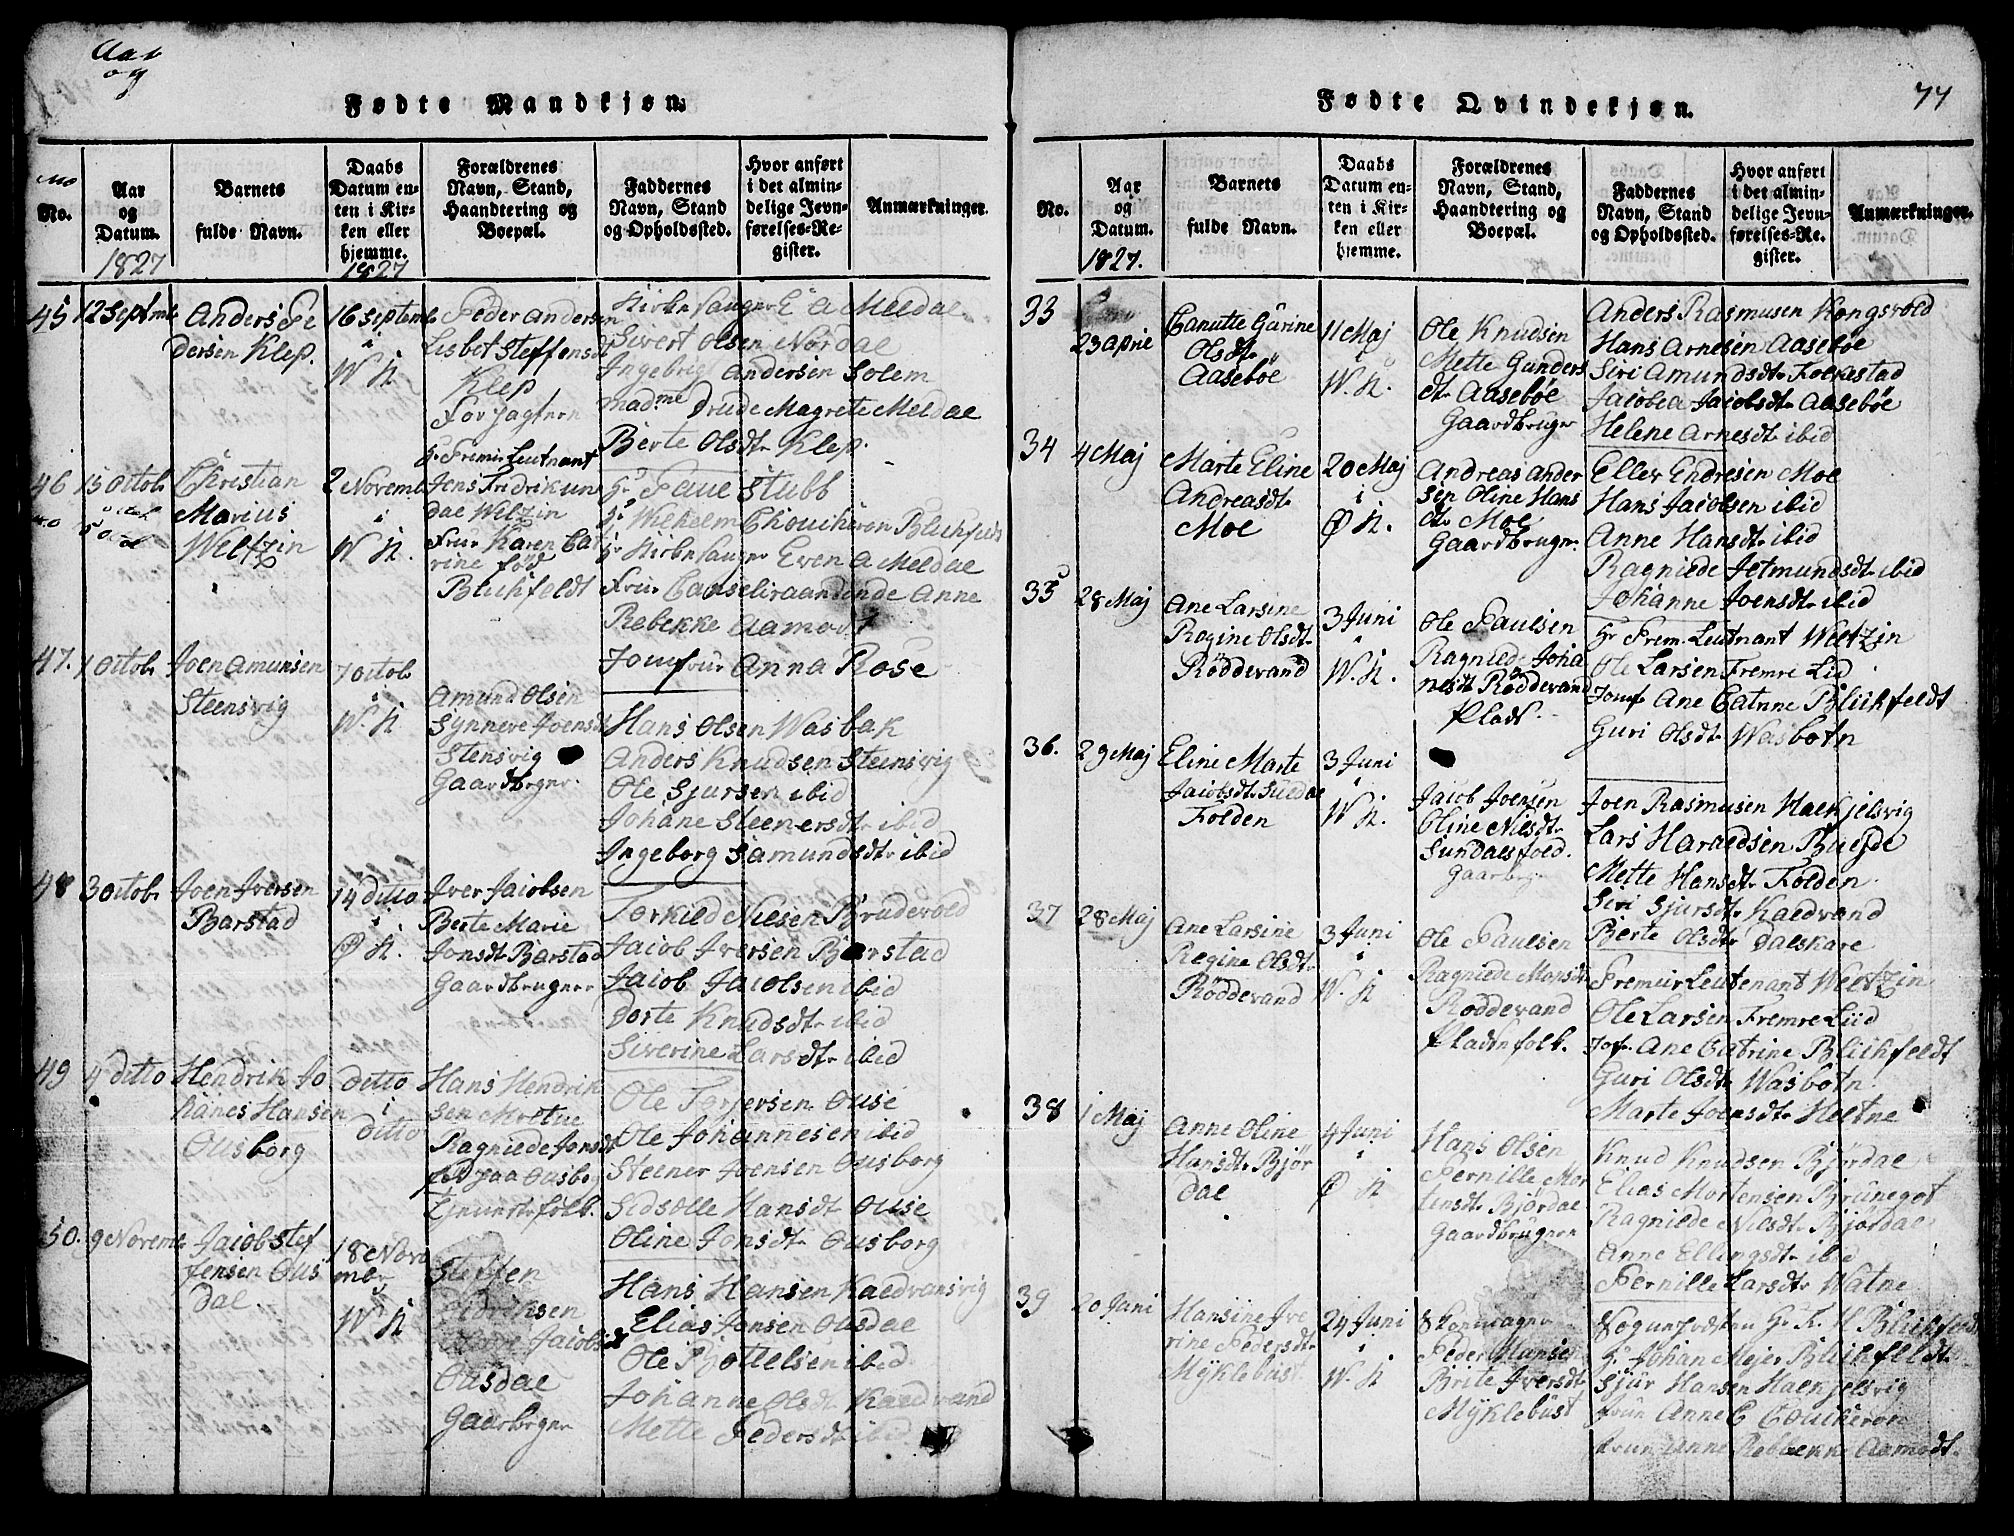 Aar
og
Fødte Mandkjøn.
No.
Aar
og
Datum.
1827
Barnets
fulde Navn.
Daabs
Datum en-
ten i Kir-
ken eller
hjemme.
1827
Forældrenes
Navn, Stand,
Haandtering og
Boepæl.
Faddernes
Navn, Stand
og Opholdssted.
Hvor anført
i det almin-
delige Jevn-
førelses-Re-
gister.
Anmærkninger.
45
12 Septmb
Anders Pe
dersen Klep.
16 Septemb
i
W K
Peder Andersen
Lisbet Steffensdt
Klep
Forpagtere
Kirkesanger E A Meldal
Sivert Olsen Nordal
Ingebrig Andersen Solem
Madme Drude Magrete Meldal
Berte Olsdt Klep.
46
15 Octob
Christian
Marius
Weltzin
2 Novemb
i
W K.
Hr Premir Leutnant
Jens Fridrik un
dal Weltzin
Frue Karen Cat
rine fød
Blichfeldt
Hr Paul Stubb
Hr Wilhelm Choucheron Blichfeldt
Hr Kirkesanger Even A Meldal
Frue Canseliraadinde Anne
Rebekke Aamodt
Jomfrue Anna Rose
47.
1 Octob
Joen Amunsen
Steensvig
7 Octob
i
W. K.
Amund Olsen
Synneve Joensdt
Stensvig
Gaardbrger.
Hans Olsen Wasbak
Anders Knudsen Steensvig
Ole Sjursen ibid
Johane Steenersdt ibid
Ingeborg Samundsdt ibid
48
3 Octob.
Joen Iversen
Barstad
14 Ditto
i
Ø K.
Iver Jacobsen
Berte Marie
Jonsdt Barstad
Gaardbruger
Torkild Nielsen Brudevold
Jacob Iversen Barstad
Jacob Jacobsen ibid
Dorte Knudsdt ibid
Siverine Larsdt ibid
49
4 ditto
Hendrik Jo
hanes Hansen
Ousborg
Ditto
i
ditto
Hans Hendrik
sen Moltue
Ragnilde Jonsdt
fød paa Ousborg
Tjenistefolk.
Ole Torjersen Ouse
Ole Johannesen ibid
Steener Joensen Ousborg
Sidselle Hansdt Ouse
Oline Jonsdt Ousborg
50.
9 Novemb
Jacob Stef
fensen Ous
dal
18 Nove
mbr
W K
Steffen
Didriksen
Jacobsdt
Ousdal
Gaarbrger
Hans Hansen Kaldvansvig
Elias Jensen Ousdal
Ole Pottelsen ibid
Johanne Olsdt Kaldvand
Mette Pedersdt ibid
Fødte Qvindekjøn.
77
No.
Aar
og
Datum.
1827.
Barnets
fulde Navn.
Daabs
Datum en-
ten i Kir-
ken eller
hjemme.
Forældrenes
Navn, Stand,
Haandtering og
Boepæl.
Faddernes
Navn, Stand
og Opholdssted.
Hvor anført
i det almin-
delige Jevn-
førelses-Re-
gister.
Anmærkninger.
33
23 April
Canutte Gurine
Olsdt
Aasebøe
11 Maj
i
W. K.
Ole Knudsen
Mette Gunders
dt Aasebøe
Gaardbruger
Anders Rasmusen Kongsvold
Hans Arnesen Aasebøe
Siri Amundsdt Folkestad
Jacobea Jacobsdt Aasebøe
Helene Arnesdt ibid
34
4 Maj
Marte Eline
Andreasdt
Moe
20 Maj
i
Ø K.
Andreas Ander
sen Oline Hans
dt Moe
Gaardbruger.
Eller Endresen Moe
Hans Jacobsen ibid
Anne Hansdt ibid
Ragnilde Jetmundsdt ibid
Johanne Joensdt ibid
35
28 Maj
Ane Larsine
Regine Olsdt
Røddevand
3 Juni
W. K.
Ole Paulsen
Ragnilde Joha
nesdt Røddevand
Plads
Hr Prem. Leutnant Weltzin
Ole Larsen Fremre Lid
Jomf Ane Catrine Blichfeldt
Guri Olsdt Wasbotn
36.
29 Maj
Eline Marte
Jacobsdt Suldal
Folden
3 Juni
i
W K.
Jacob Joensen
Oline Nilsdt
Sundalsfold.
Gaarbrger
Joen Rasmusen Halkjelsvig
Lars Haraldsen Bugde
Mette Hansdt Folden
Siri Sjursdt Kaldvand
Berte Olsdt Dalskare
37
28 Maj
Ane Larsine
Regine Olsdt
Røddevand
3 Juni
i
W. K
Ole Paulsen
Ragnilde Monsdt
Roddevand
Pladsefolk.
Premier Leutenant Weltzin
Ole Larsen Fremre Liid
Jof. Ane Catrine Blichfeldt
Guri Olsdt Wasbotn
Marte Joensdt Heltne
38
1 Maj
Anne Oline
Hansdt Bjør
dal
4 Juni
i
Ø K
Hans Olsen
Pernille Mor
tensdt Bjørdal
Gaardbruger
Knud Knudsen Bjørdal
Elias Mortensen Bruneget
Ragnilde Nilsdt Bjørdal
Anne Ellingsdt ibid
Pernille Larsdt Watne
39
20 Juni
Hansine Ive
rine Pedersdt
Myklebust
24 Juni
i
W. K
Skomager
Peder Hansen
Brite Iversdt
Myklebust
Hr K. W Blichfeldt
Hr Johan Mejer Blichfeldt
Sjur Hansen Halkjelsvig
Frue Anne C Coucheron
Frue Anne Rebbekke Aamodt.